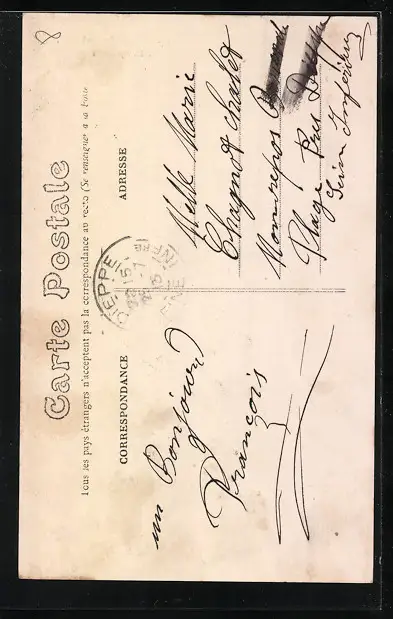 Carte Postale
Tous les pays étrangers n'acceptent pas la correspondance au recto (Se renseigner à la Poste
CORRESPONDANCE
ADRESSE
un Bonjour
François
Melle Marie
Chagnot chalet
Monrepos
Plage Puys Dieppe
Seine Inférieure
DIEPPE
SEINE INFRE